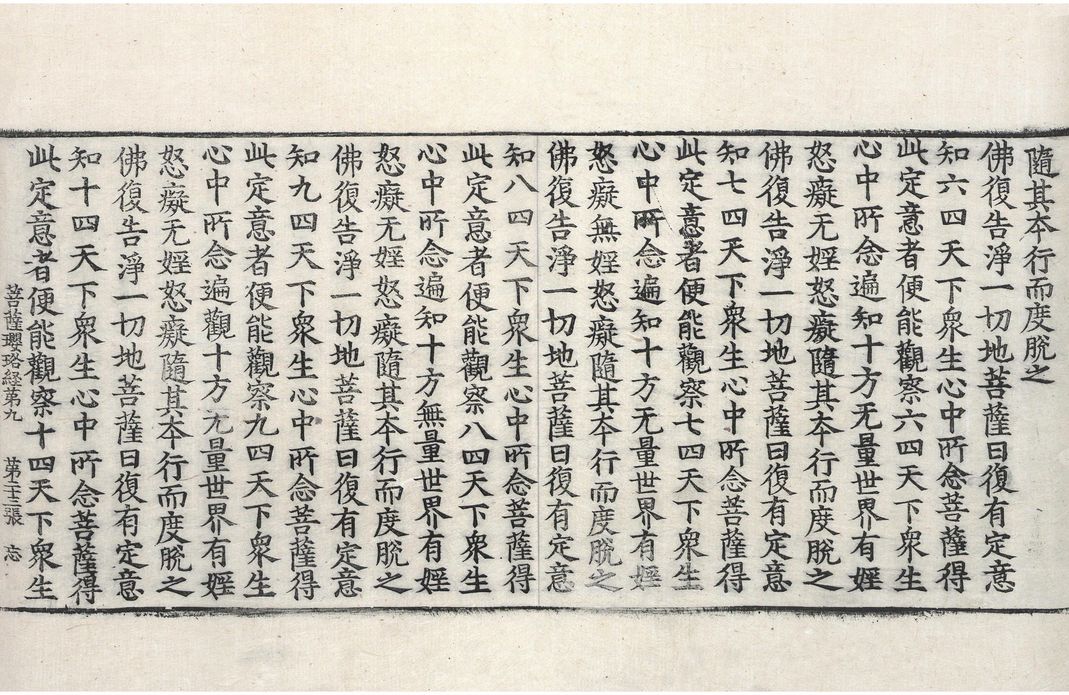 隨其夲行而度脫之
佛復告淨一切地菩薩曰復有定意
知六四天下衆生心中所念菩薩得
此定意者便能觀察六四天下衆生
心中所念遍知十方无量世界有婬
怒癡无婬怒癡隨其夲行而度脫之
佛復告淨一切地菩薩曰復有定意
知七四天下衆生心中所念菩薩得
此定意者便能觀察七四天下衆生
心中所念遍知十方无量世界有婬
怒癡無婬怒癡隨其夲行而度脫之
佛復告淨一切地菩薩曰復有定意
知八四天下衆生心中所念菩薩得
此定意者便能觀察八四天下衆生
心中所念遍知十方無量世界有婬
怒癡无婬怒癡隨其夲行而度脫之
佛復告淨一切地菩薩曰復有定意
知九四天下衆生心中所念菩薩得
此定意者便能觀察九四天下衆生
心中所念遍觀十方无量世界有婬
怒癡无婬怒癡隨其夲行而度脫之
佛復告淨一切地菩薩曰復有定意
知十四天下衆生心中所念菩薩得
此定意者便能觀察十四天下衆生
菩薩瓔珞経第九 第二十三張 忘